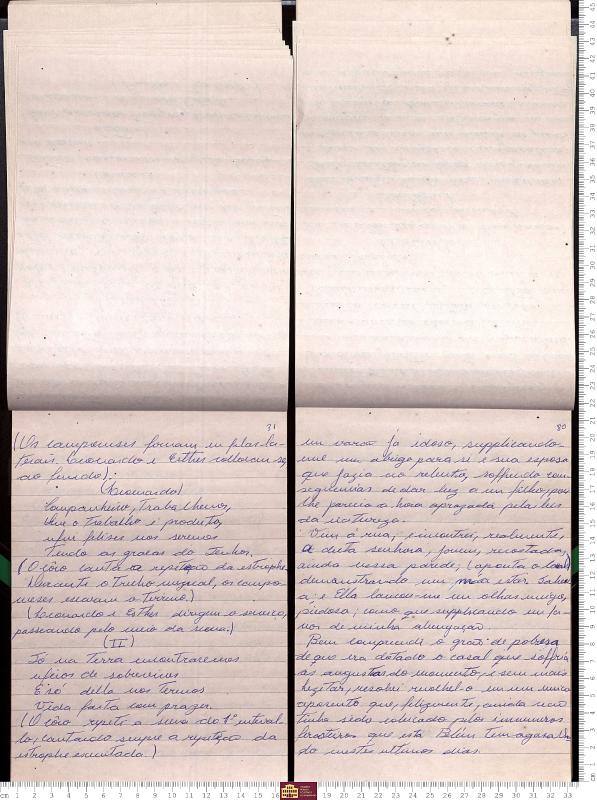 31
(Os camponeses formam em filas la-
terais. Leonardo e Esther collocam-se,
ao fundo):
(Leonardo)
Companheiros, trabalhemos,
Que o trabalho é produto,
felizes nos seremos
Tendo as graças do Senhor.
(O côro canta a repetição da estrophe.
Durante o trecho musical, os campo-
neses escavam o terreno.)
(Leonardo e Esther dirigem o serviço,
passeando pelo meio da scena.)
(II)
Só na terra encontraremos
meios de sobreviver
E só della nos termos
Vida farta com prazer.
(O côro repete a scena do 1º interval-
lo, cantando sempre a repetição da
estrophe executada.)
80
um varão já idoso, supplicando-
me um abrigo para si e sua esposa
que jazia ao relento, soffrendo con-
sequencias de dar luz a um filho, pois
lhe parecia a hora aprazada pelas leis
da natureza.
Vim á rua, encontrei, realmente,
a dita senhora, jovem, recostada,
ainda nessa parede, (aponta o local)
demonstrando um mau estar
e Ella lançou-me um olhar meigo,
piedoso, como que supplicando um fa-
vor de minha abnegação.
Bem comprehendi o gráu de pobreza
de que era dotado o casal que soffria
as angustias do momento, e sem mais
hezitar, resolvi recolhel-o em um unico
aposento que, felizmente, ainda não
tinha sido collocado pelos innumeros
forasteiros que esta Belém tem agasalha-
do nestes ultimos dias.